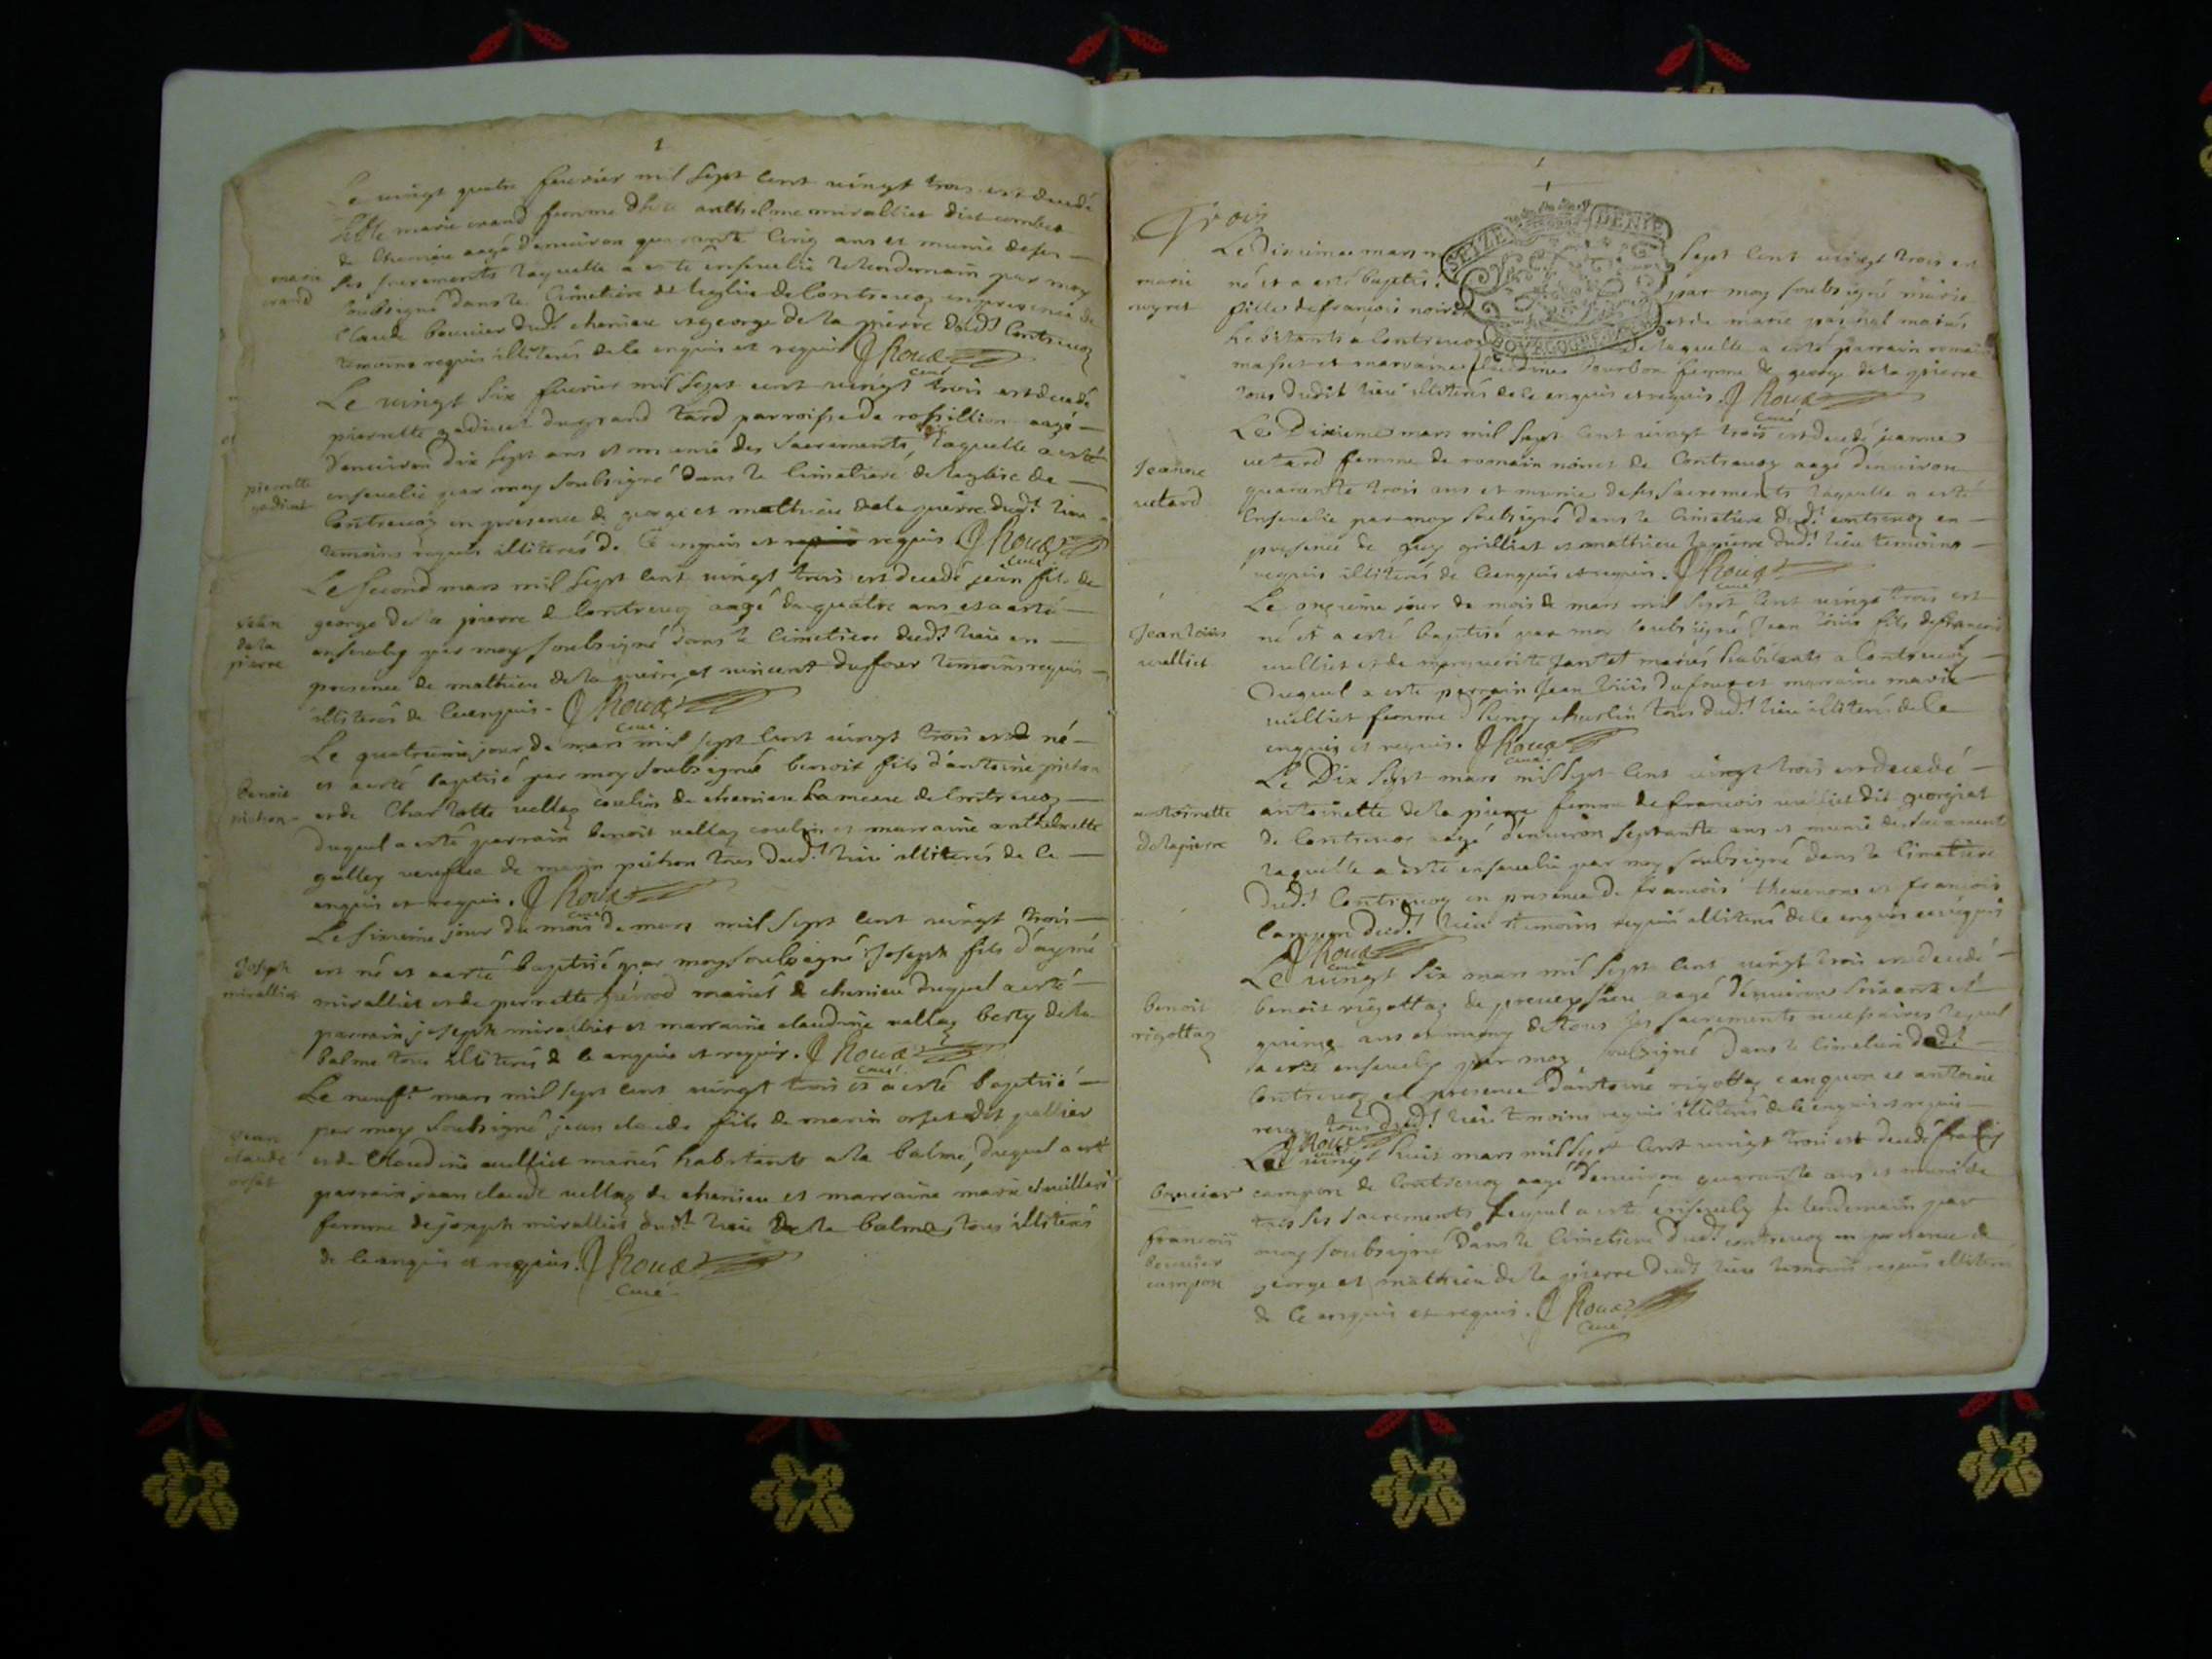 1
Le vingt quatre fevrier mil sept cent vingt trois est decedé
marie crand femme anthelme miralliet dit
de chemieu aagé d'environ quarante cinq ans et munie de ses
marie
crand
ses sacrements laquelle a esté ensevelie le lendemain par moy
soubsigné dans le cimetiere de leglise de Contrevoz en presence de
Claude bouvier dud.t chemieu et george de la pierre dud.t Contrevoz
temoins requis illiterés de ce enquis et requis J Roux
curé
Le vingt six fevrier mil sept cent vingt trois est decedé
pierrette gadiuet du grand tard parroisse de rossillion aagé
d'environ dix sept ans et munie des sacrements, laquelle a esté
pierrette
gadiuet
ensevelie par moy soubsigné dans le cimetiere de leglise de
Contrevoz en presence de george et mathieu dela pierre dud.t lieu
temoins requis illiterés de ce enquis et requis J Roux
curé
Le second mars mil sept cent vingt trois est decedé jean fils de
george de la pierre de Contrevoz aagé de quatre ans et a esté
jean
dela
pierre
ensevely par moy soubsigné dans le cimetiere dud.t lieu en
presence de mathieu de la pierre et vincent dufour temoins requis
illiterés de ce enquis. J Roux
curé
Le quatrieme jour de mars mil sept cent vingt trois est né
et a esté baptisé par moy soubsigné benoit fils d'antoine pichon
benoit
pichon
et de Charlotte vellaz coulin de chemieu hameau de Contrevoz
duquel a esté parrain benoit vallaz coulin et marraine anthelmette
galley veufve de marin pichon tous dud.t lieu illiterés de ce
enquis et requis. J Roux
curé
Le sixieme jour du mois de mars mil sept cent vingt trois
est né et a esté baptisé par moy soubsigné Joseph fils d'aymé
Joseph
miralliet
miralliet et de pernette mariés de chemieu duquel a esté
parrain joseph miralliet et marraine claudine vallaz besty de la
balme tous illiterés de ce enquis et requis. J Roux
curé
Le neuf.e mars mil sept cent vingt trois et a esté baptisé
par moy soubsigné jean claude fils de marin orset dit pallier
jean
claude
orset
et de Claudine vulliet mariés habitants a la balme, duquel a esté
parrain jean claude vellaz de chemieu et marraine marie
femme de joseph miralliet dud.t lieu de la balme tous illiterés
de ce enquis et requis. J Roux
curé
1
Trois
SEIZE DENIE
BOURGOGNE
Le dixieme mars sept cent vingt trois est
marie
noyret
né et a esté baptisé par moy soubsigné marie
fille de francois et de marie mariés
habitants a Contrevoz de laquelle a esté parrain romain
masset et marraine claudine bourbon femme de george de la pierre
tous dudit lieu illiterés de ce enquis et requis. J Roux
curé
Le Dixieme mars mil sept cent vingt trois est decedé jeanne
Jeanne
vetard
vetard femme de romain noiret de Contrevoz aagé denviron
quarante trois ans et munie de ses sacrements laquelle a esté
Ensevelie par moy soubsigné dans le cimetiere dud.t contrevoz en
presence de guy grilliet et mathieu lapierre dud.t lieu temoins
requis illiterés de ce enquis et requis. J Roux
curé
Le onzieme jour du mois de mars mil sept cent vingt trois est
Jean loüis
vulliet
né et a esté baptisé par moy soubsigné Jean loüis fils de francois
vulliet et de marguerite jantet mariés habitants a Contrevoz
duquel a esté parrain Jean loüis dufour et marraine marie
vulliet femme d'henry tous dud.t lieu illiterés de ce
enquis et requis. J Roux
curé
Le Dix sept mars mil sept cent vingt trois est decedé
antoinette
delapierre
antoinette de la pierre femme de francois vulliet dit
de Contrevoz aagé denviron septante ans et munie des sacrements
laquelle a esté ensevelie par moy soubsigné dans le cimetiere
dud.t Contrevoz en presence de francois thevenon et francois
campon dud.t lieu temoins requis illiterés de ce enquis et requis
J Roux
curé
Le vingt six mars mil sept cent vingt trois est decedé
benoit
rigottaz
benoit rigottaz de preveyzieu aagé denviron soixante et
quinze ans et muny de tous les sacrements necessaires lequel
a esté ensevely par moy soubsigné dans le cimetiere dud.t
Contrevoz en presence d'antoine rigottaz canquoin et antoine
revoz tous dud.t lieu temoins requis illiterés de ce enquis et requis
J Roux
curé
Le vingt huit mars mil sept cent vingt trois est decedé francois
bouvier
campon de Contrevoz aagé denviron quarante ans et muni de
tous ses sacrements lequel a esté ensevely le lendemain par
francois
bouvier
campon
moy soubsigné dans le cimetiere dud.t contrevoz en presence de
george et mathieu de la pierre dud.t lieu temoins requis illiterés
de ce enquis et requis. J Roux
curé